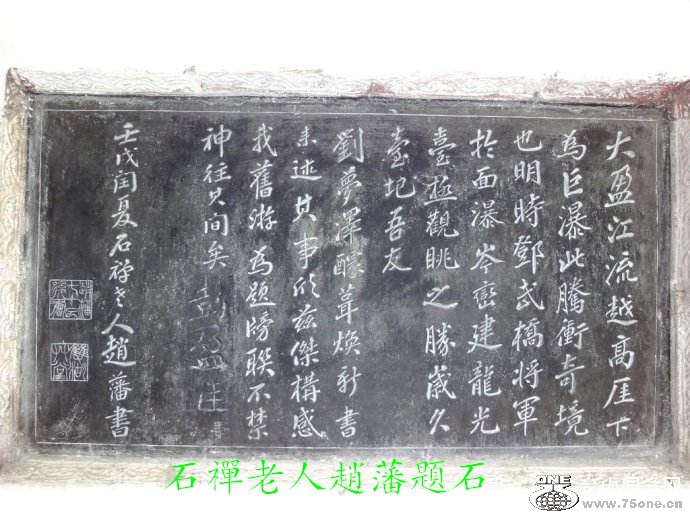 大盈江流越高厓下
為巨瀑此騰衝奇境
也明時鄧武橋將軍
於面瀑岑巒建龍光
臺極觀眺之勝歲久
臺圮吾友
劉夢澤醵葺煥新書
来述其事欣茲傑構感
我舊游為題牓聯不禁
神往其間矣
壬戌閏夏石禅老人趙藩書
石禪老人趙藩題石
ONE
www.75one.com